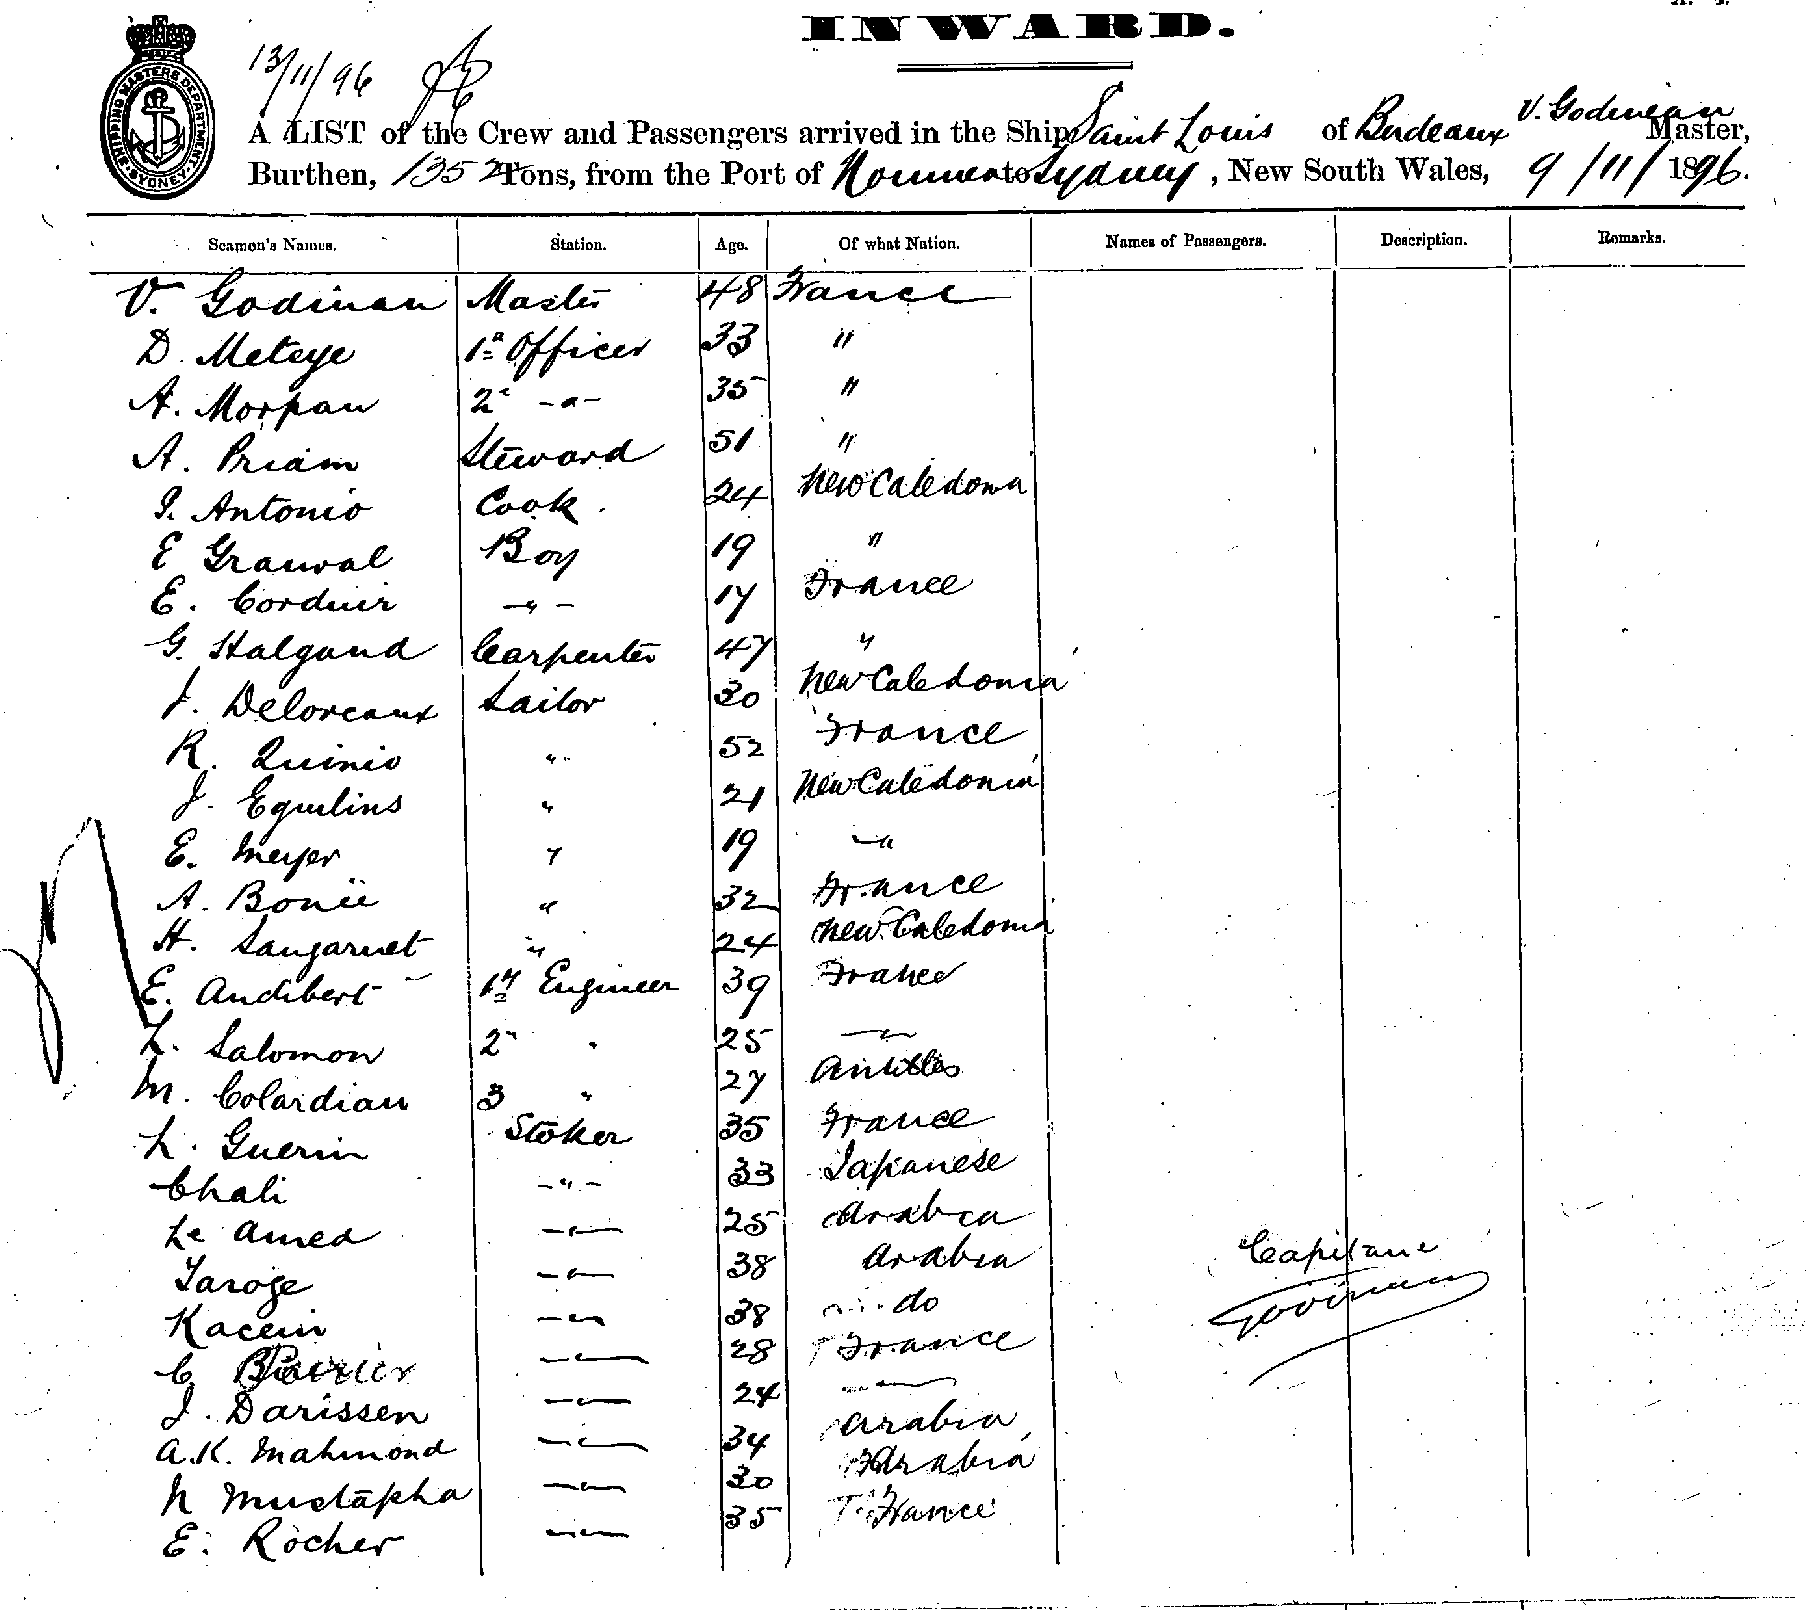 INWARD.
SHIPPING MASTERS DEPARTMENT SYDNEY
13/11/96
A LIST of the Crew and Passengers arrived in the Ship Saint Louis of Bordeaux V. Godineau Master,
Burthen, 1352 Tons, from the Port of Noumea to Sydney, New South Wales, 9/11/1896.
Seamen's Names. Station. Age. Of what Nation. Names of Passengers. Description. Remarks.
V. Godineau Master 48 France
D. Meteye 1st Officer 33 "
A. Morpau 2d -"- 35 "
A. Priam Steward 51 "
I. Antonio Cook. 24 New Caledonia
E Grauval Boy 19 "
E. Corduir -"- 17 France
G. Halgand Carpenter 47 "
J. Deloreaux Sailor 30 New Caledonia
R. Quinio " 52 France
J. Equilins " 21 New Caledonia
E. Meyer " 19 -"
A. Bonii " 32 France
H. Sangarnet " 24 New Caledonia
E. Audibert 1st Engineer 39 France
L. Salomon 2d " 25 -"-
M. Colardian 3 " 27 Antilles
L. Guerin Stoker 35 France
Chali -"- 33 Japanese
Le Amed -"- 25 Arabia
Taroge -"- 38 Arabia
Kacein -"- 38 do
C. Poirier -"- 28 France
J. Darissen -"- 24 -"-
A.K. Mahmond -"- 34 Arabia
N Mustapha -"- 30 Arabia
E. Rocher -"- 35 France
Capitaine
Godineau